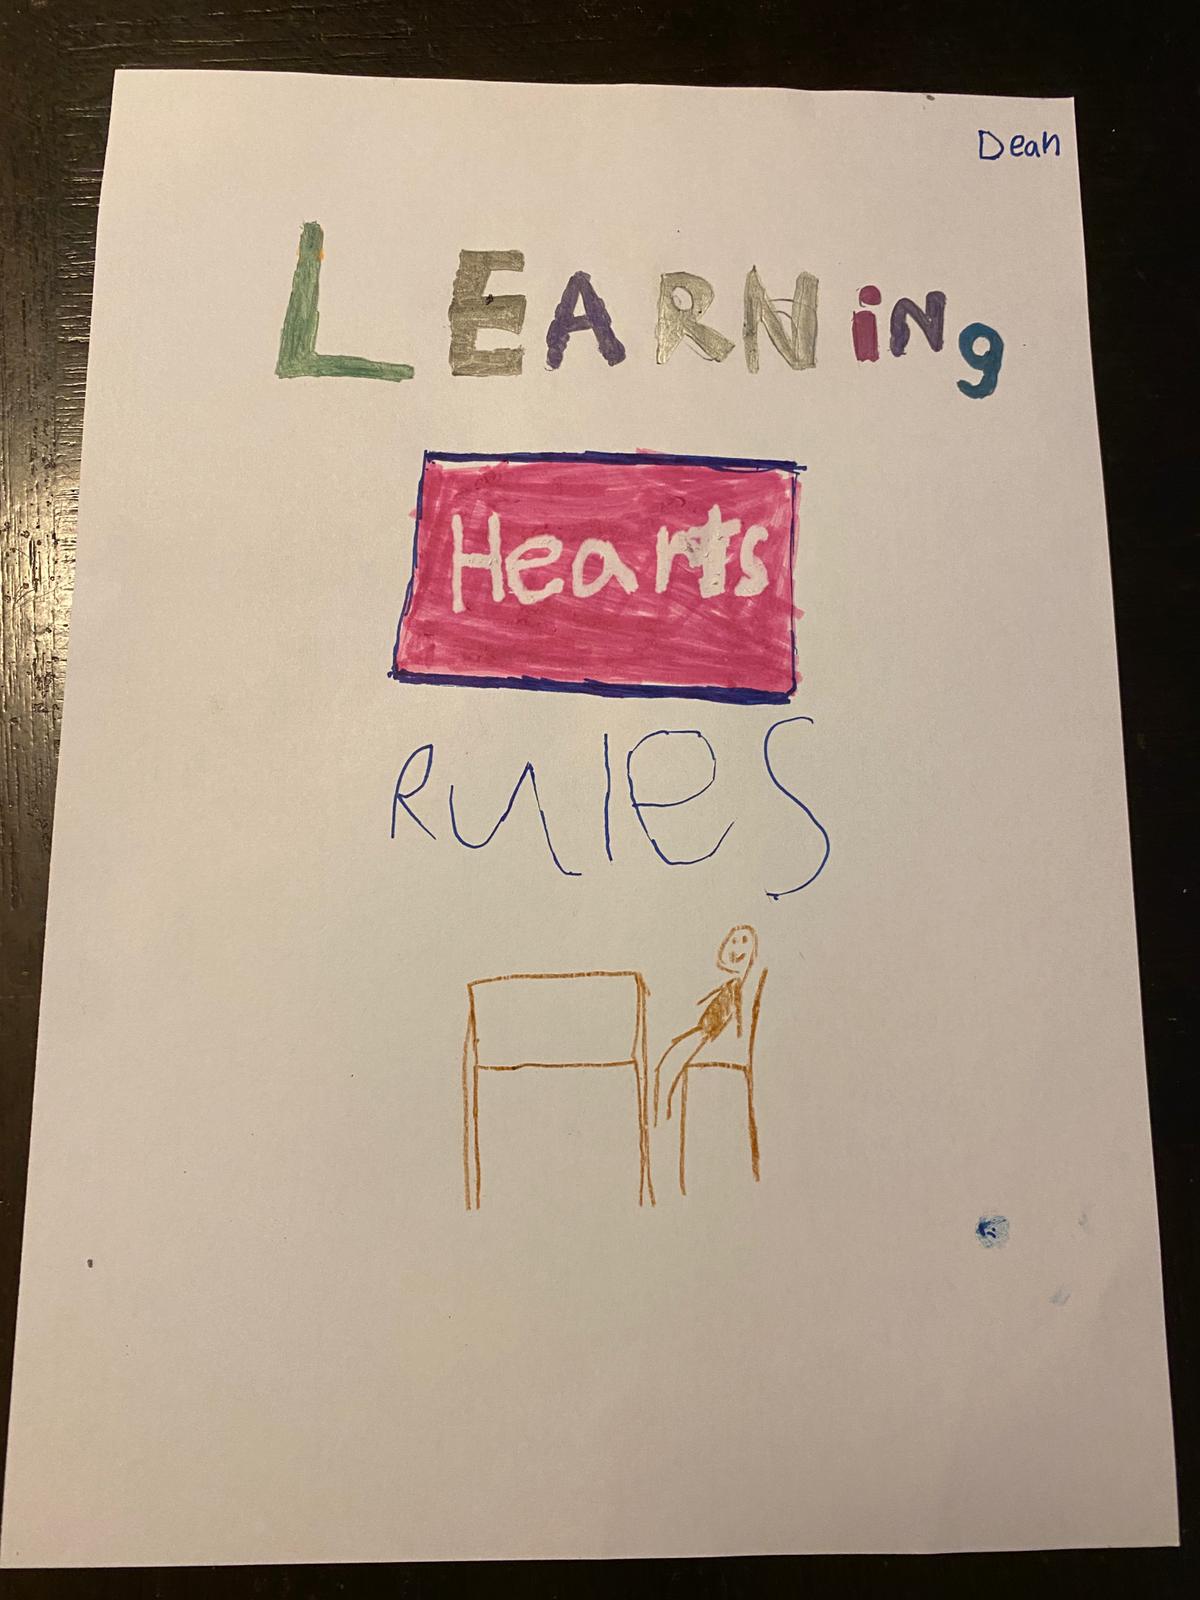 Dean
LEARNiNg
Hearts
RULES